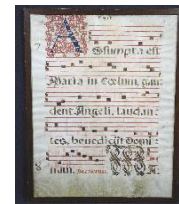 Assumpta est
Maria in Cœlum, gau
dent Angeli, laudan
tes, benedicũt Domi
num.